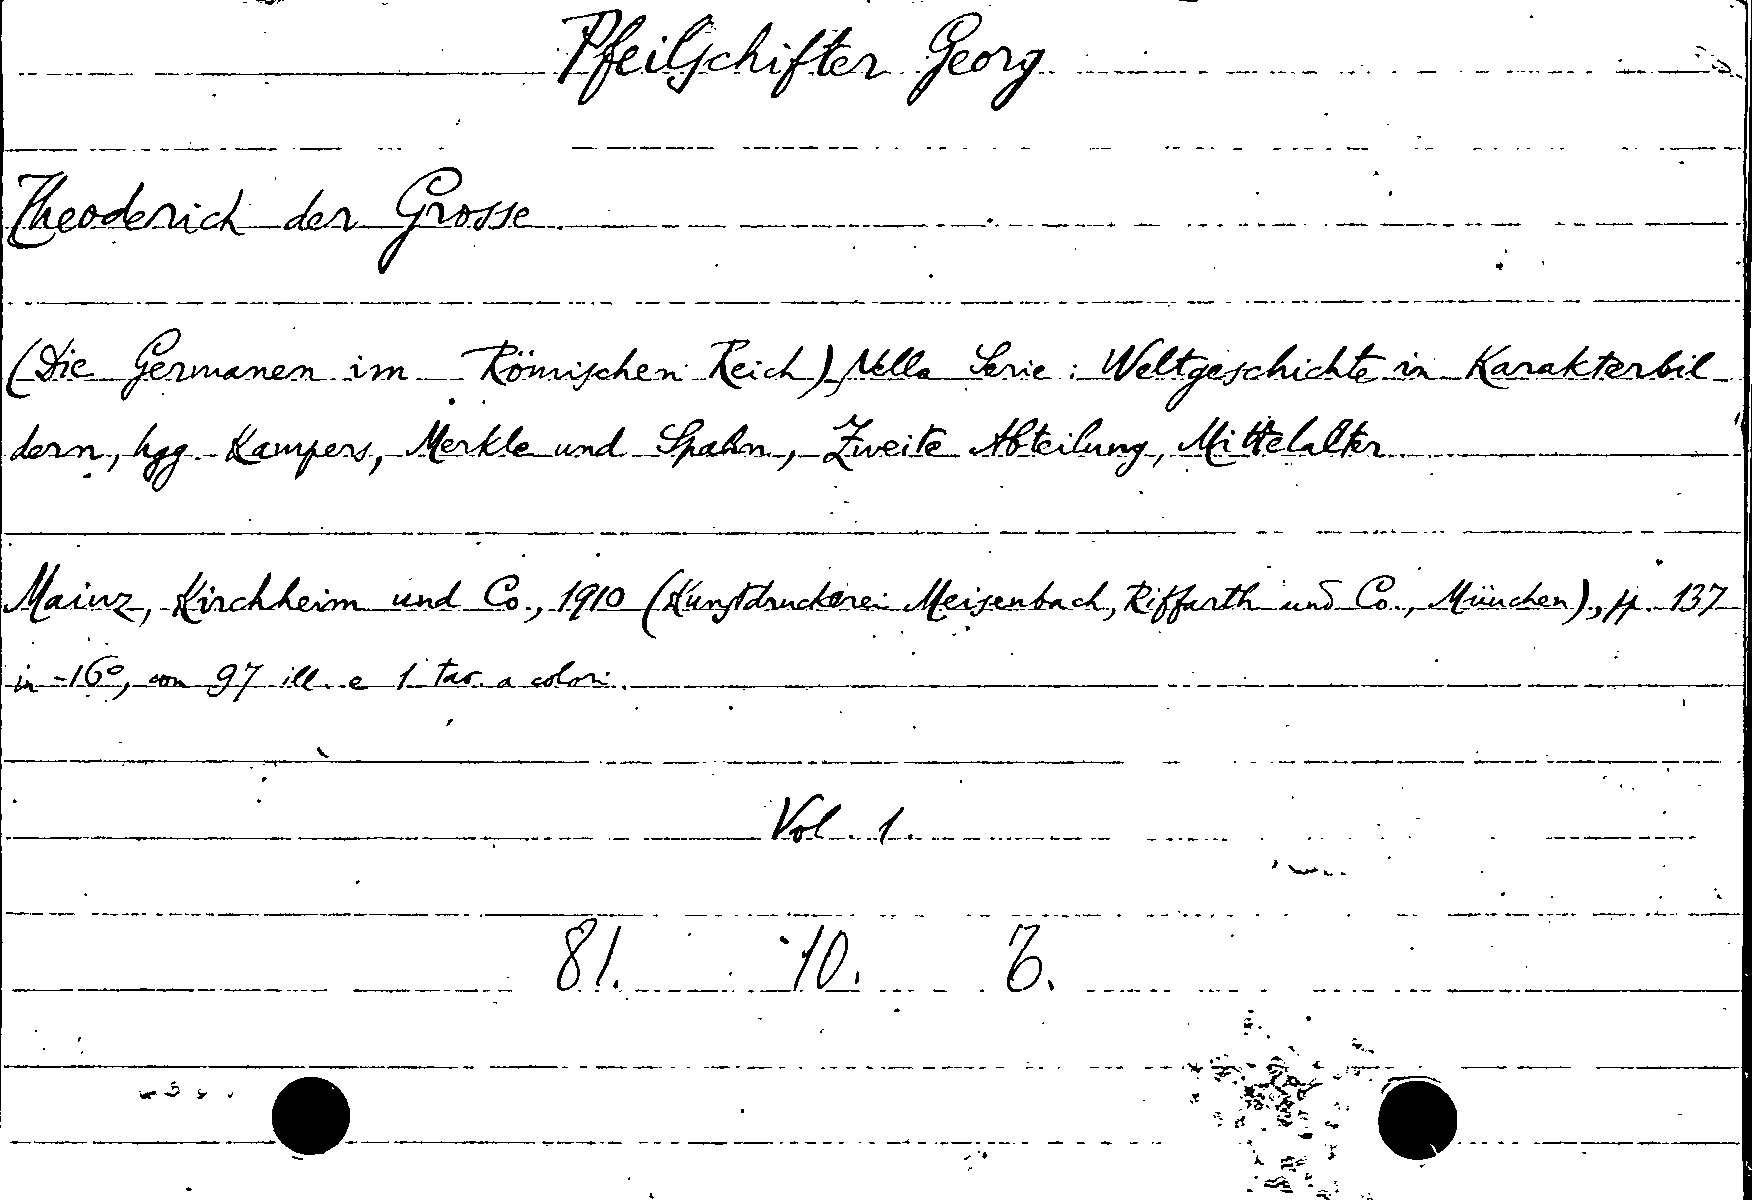 Pfeilschifter Georg
Theoderich der Grosse
(Die Germanen im Römischen Reich), Nella Serie: Weltgeschichte in Karakterbil
dern, hgg. Kampers, Merkle und Spahn, Zweite Abteilung, Mittelalter
Mainz, Kirchheim und Co., 1910 (Kunstdruckerei Meisenbach, Riffarth und Co., München), pp. 137
in-16°, con 97 ill. e 1 tav. a colori.
Vol. 1.
81. 10. 6.